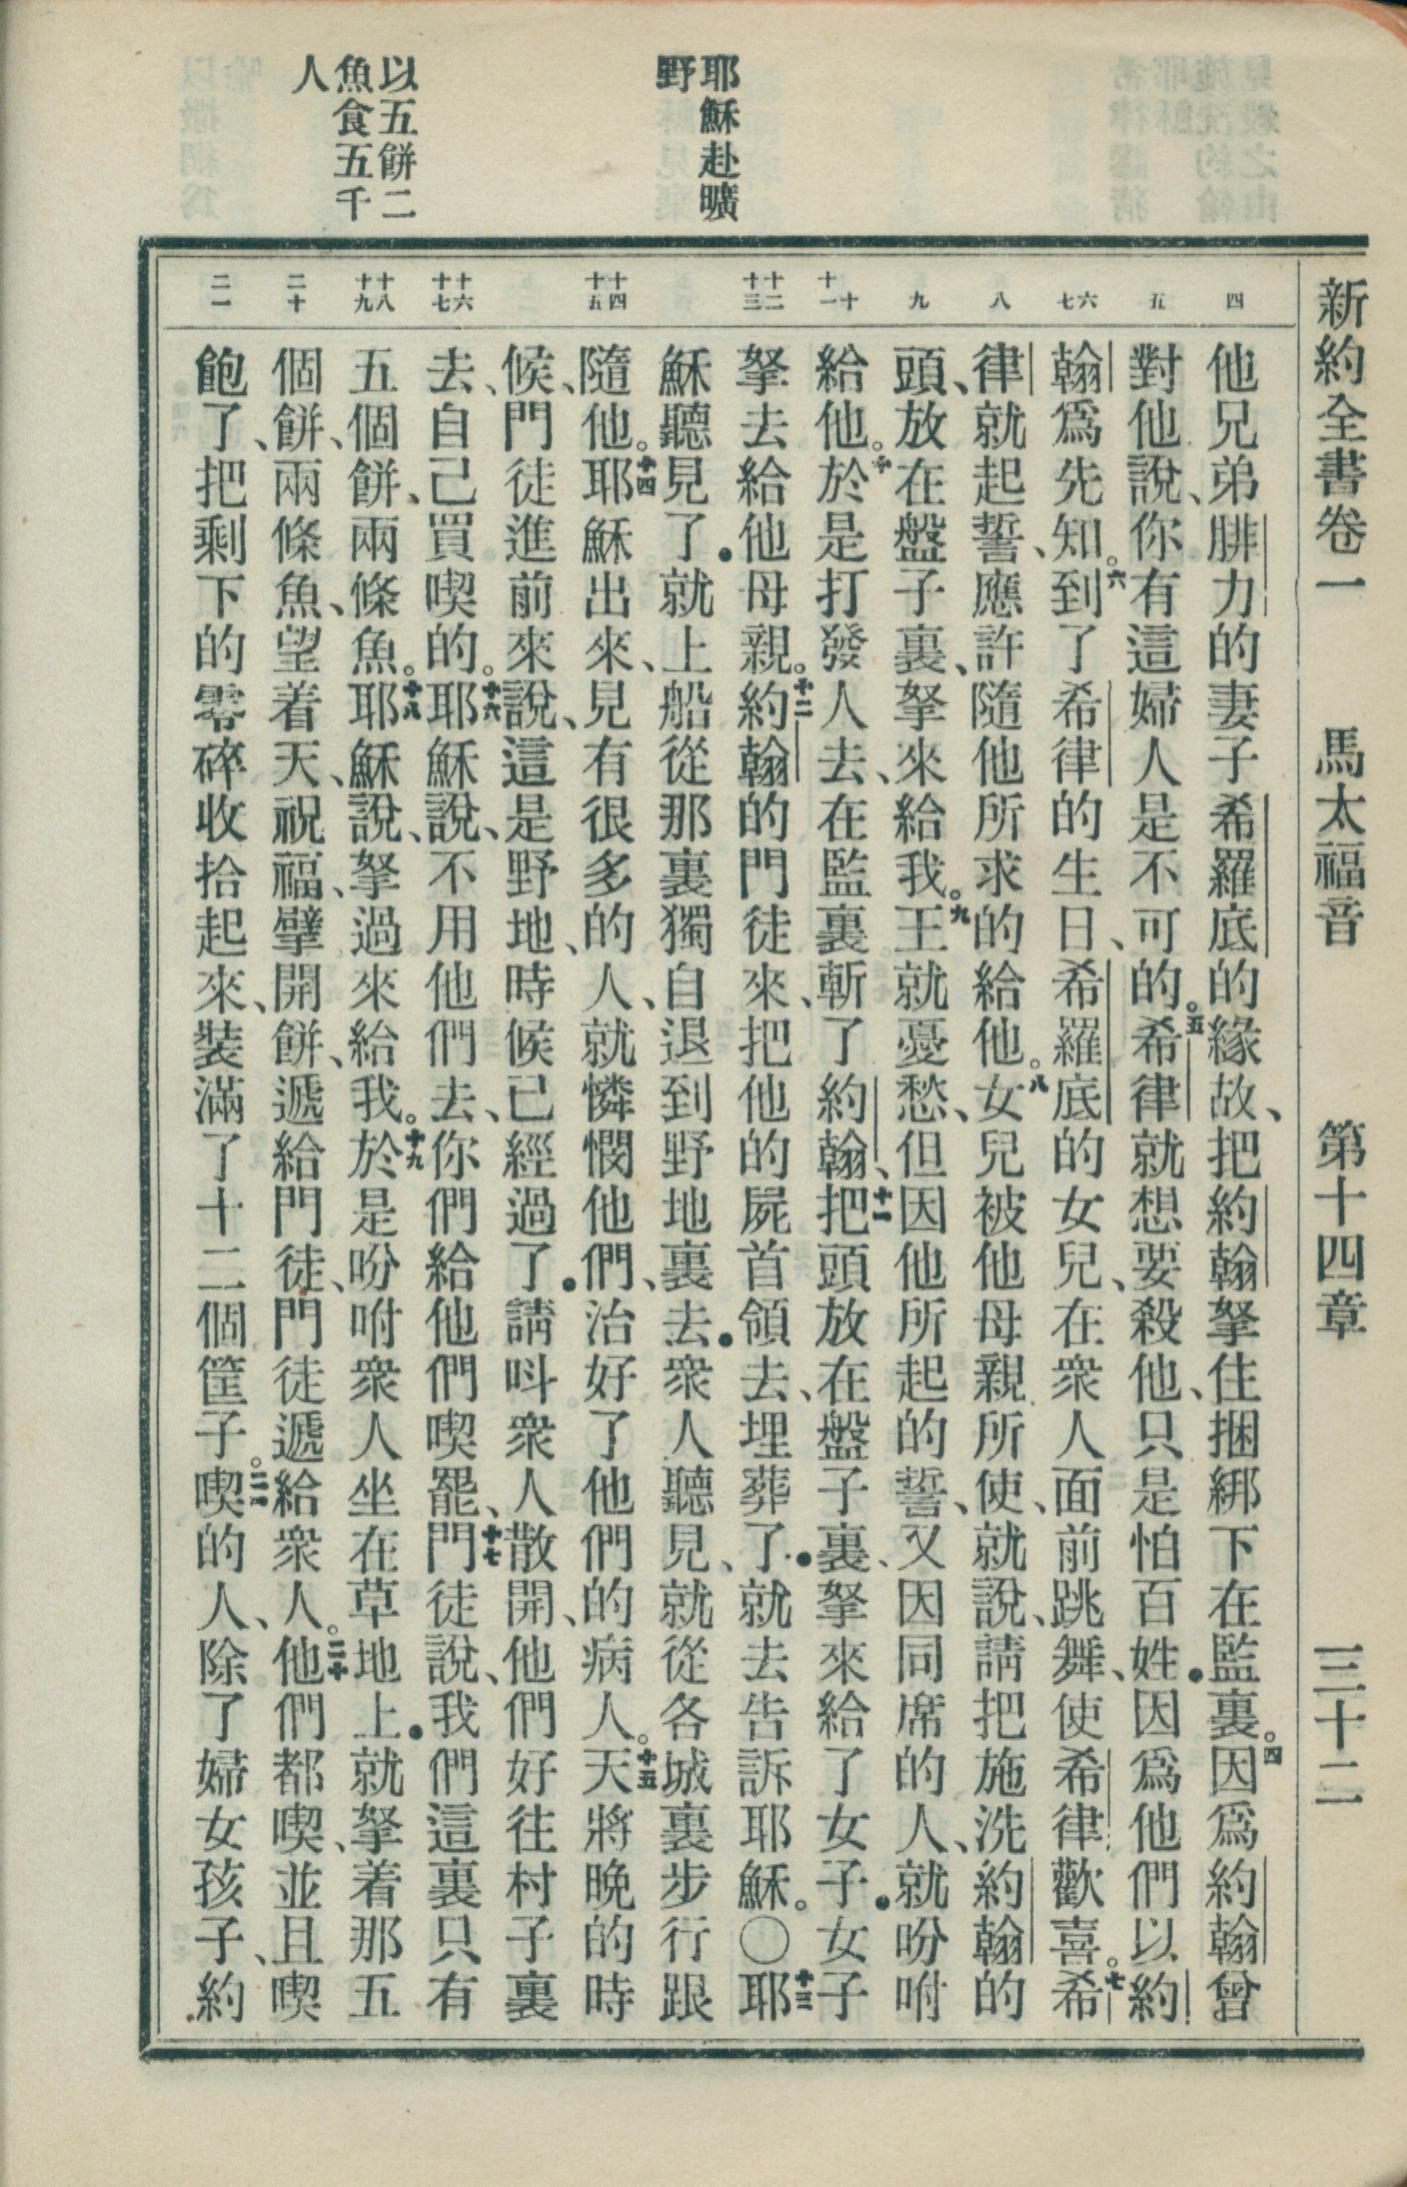 新約全書卷一　馬太福音　第十四章　三十二
耶穌赴曠
野
以五餅二
魚食五千
人
四
五
六
七
八
九
十
十一
十二
十三
十四
十五
十六
十七
十八
十九
二十
二一
他兄弟腓力的妻子希羅底的緣故、把約翰拏住捆綁下在監裏。四因爲約翰曾
對他說、你有這婦人是不可的。五希律就想要殺他、只是怕百姓．因爲他們以約
翰爲先知。六到了希律的生日、希羅底的女兒、在衆人面前跳舞、使希律歡喜。七希
律就起誓、應許隨他所求的給他。八女兒被他母親所使、就說、請把施洗約翰的
頭、放在盤子裏、拏來給我。九王就憂愁、但因他所起的誓、又因同席的人、就吩咐
給他。十於是打發人去、在監裏斬了約翰、十一把頭放在盤子裏、拏來給了女子．女子
拏去給他母親。十二約翰的門徒來、把他的屍首領去、埋葬了．就去告訴耶穌。〇十三耶
穌聽見了．就上船從那裏獨自退到野地裏去．衆人聽見、就從各城裏步行跟
隨他。十四耶穌出來、見有很多的人、就憐憫他們、治好了他們的病人。十五天將晚的時
候、門徒進前來說、這是野地、時候已經過了．請呌衆人散開、他們好往村子裏
去、自己買喫的。十六耶穌說、不用他們去、你們給他們喫罷、十七門徒說、我們這裏只有
五個餅、兩條魚。十八耶穌說、拏過來給我。十九於是吩咐衆人坐在草地上．就拏着那五
個餅、兩條魚、望着天、祝福、擘開餅、遞給門徒、門徒遞給衆人。二十他們都喫、並且喫
飽了、把剩下的零碎收拾起來、裝滿了十二個筐子。二一喫的人、除了婦女孩子、約